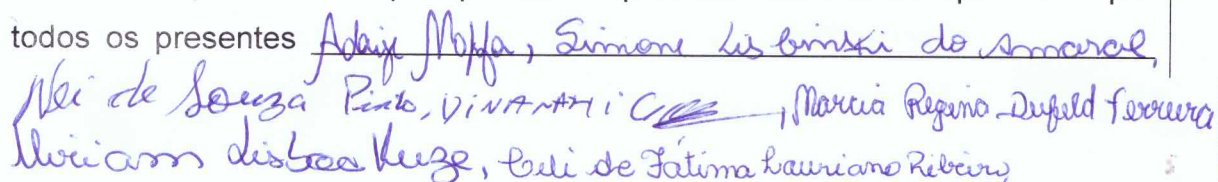 todos os presentes Adaije Moffa, Simone Lisbinski do Amaral,
Nei de Souza Pinto, , Marcia Regina Dufeld Ferreira
Miriam Lisboa Kuze, Celi de Fátima Lauriano Ribeiro,